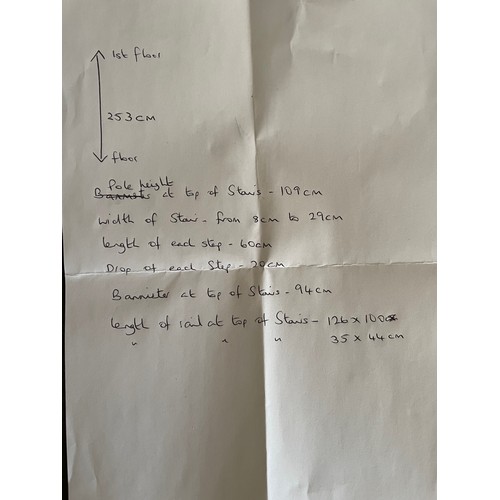 1st floor
253 cm
floor
Pole height
at top of Stairs - 109cm
width of Stair - from 8cm to 29cm
length of each step - 60cm
Drop of each Step - 20cm
Bannister at top of Stairs - 94cm
length of rail at top of Stairs - 126 x 100
" " " 35 x 44 cm